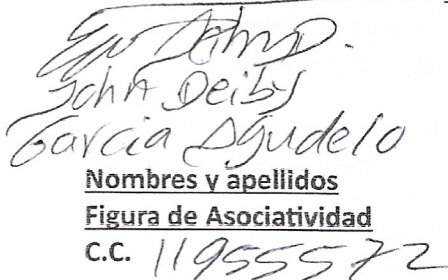 John Deiby
Garcia Agudelo
Nombres y apellidos
Figura de Asociatividad
C.C. 119555572